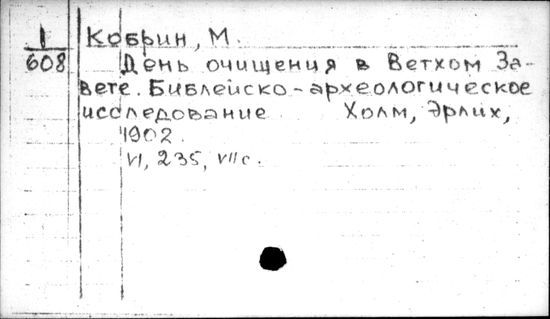 1
608
Кобрин, М.
День очищения в Ветхом За-
вете. Библейско-археологическое
исследование Холм, Эрлих,
1902.
VI, 235, VII с.